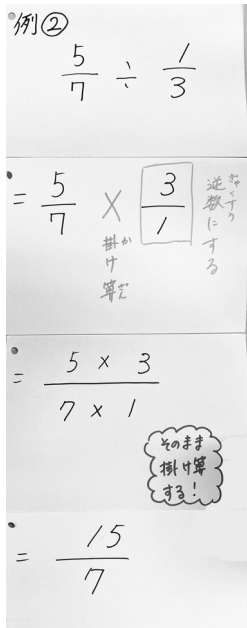 例②
5/7 ÷ 1/3
= 5/7 × 3/1
掛け算
かざん
逆数にする
ぎゃくすう
= 5 × 3 / 7 × 1
そのまま
掛け算
する!
= 15/7